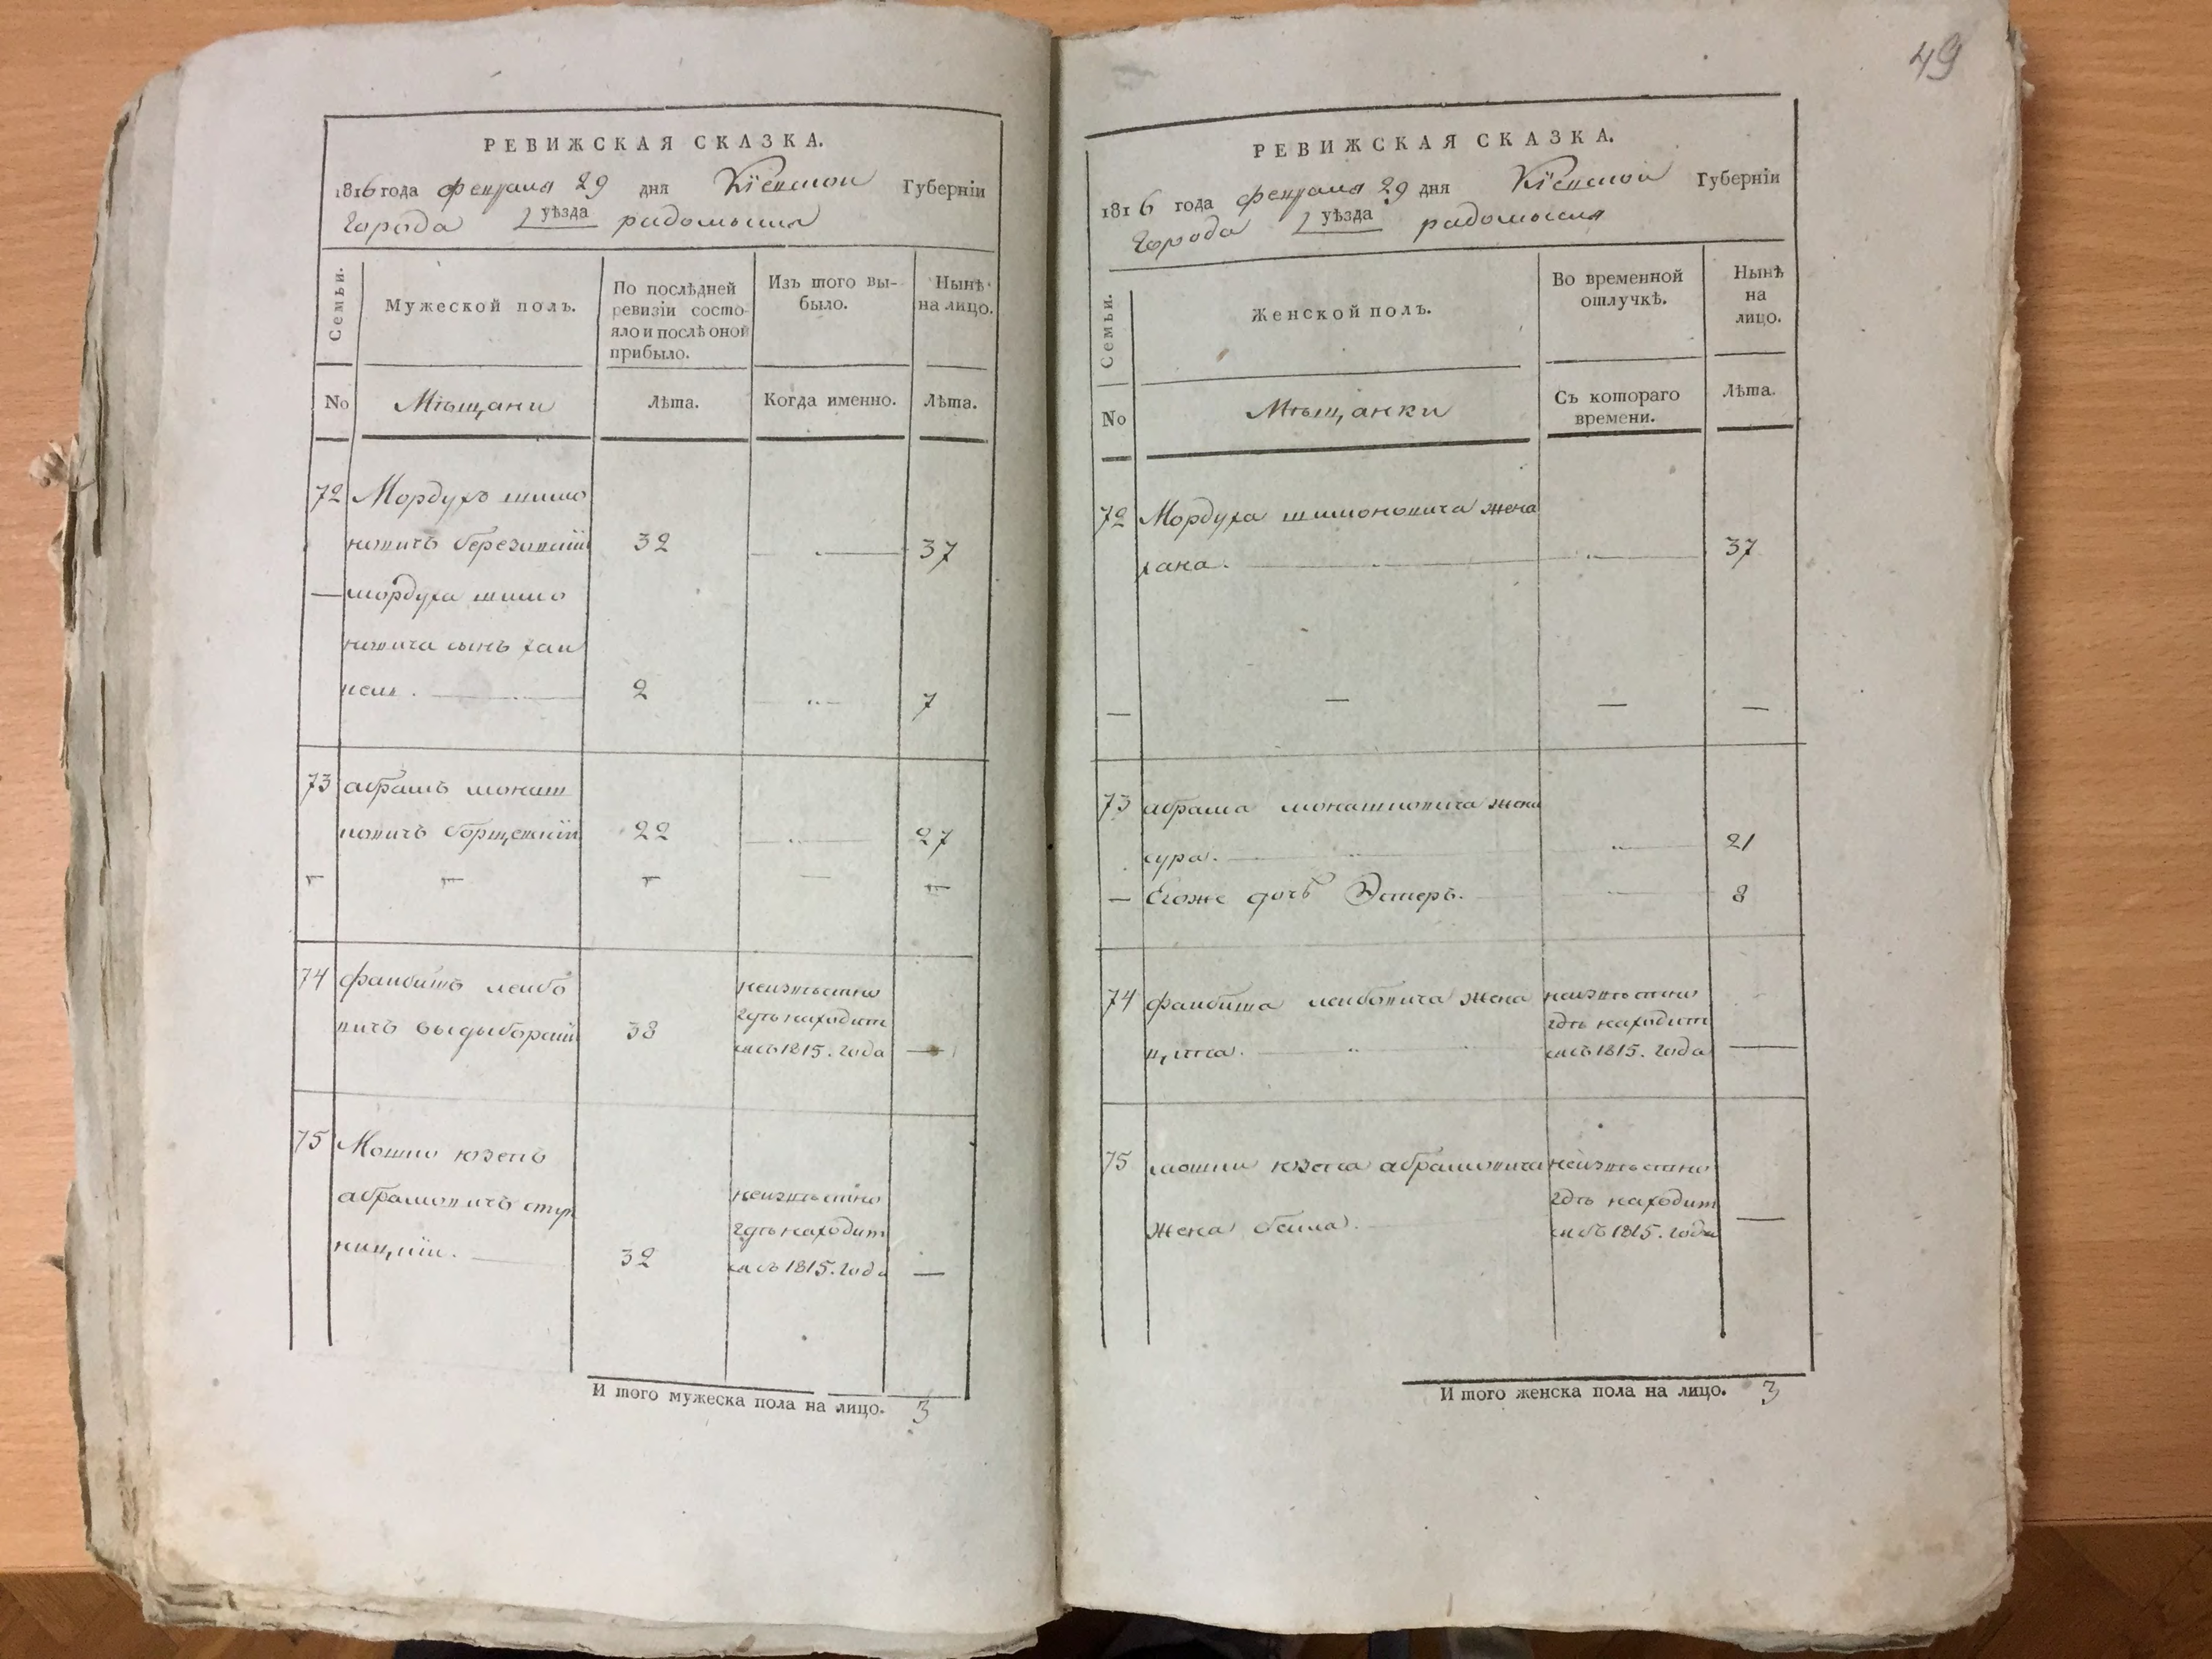 49
РЕВИЖСКАЯ СКАЗКА.
1816 года февраля 29 дня Кіевской Губерніи
Города уѣзда радомысля
Семьи.
Мужеской полъ.
По послѣдней
ревизіи состо-
яло и послѣ оной
прибыло.
Изъ того вы-
было.
Нынѣ
на лицо.
No Мѣщани Лѣта. Когда именно. Лѣта.
72 Мордухъ шимо
новичъ березовский 32 37
— мордуха шимо
новича сынъ хаи
кель. 2 7
73 абрамъ монаш
ковичъ борщевский 22 27
74 фаибишъ леибо
вичъ выдыборский 38
неизвѣстно
гдѣ находит
ся съ 1815. года —
75 Мошко юзепъ
абрамовичъ ступ
ницкии. 32
неизвѣстно
гдѣ находит
ся съ 1815. года —
И того мужеска пола на лицо. 3
РЕВИЖСКАЯ СКАЗКА.
1816 года февраля 29 дня Кіевской Губерніи
Города уѣзда радомысля
Семьи.
Женской полъ.
Во временной
отлучкѣ.
Нынѣ
на
лицо.
No Мѣщанки
Съ котораго
времени.
Лѣта.
72 Мордуха шимоновича жена
хана. 37
— — — —
73 абрама монашковича жена
сура. 21
— Егоже дочь Эстеръ. 8
74 фаибиша леибовича жена
неизвѣстно
гдѣ находит
ся съ 1815. года —
75 мошки юзепа абрамовича
жена беила.
неизвѣстно
гдѣ находит
ся съ 1815. года —
И того женска пола на лицо. 3